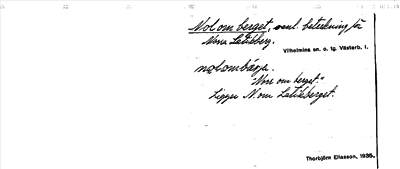 Nol om berget, vanl. beteckning för
Norra Latikberg.
Vilhelmina sn. o. tg. Västerb. l.
nɷlombärjə.
"Norr om berget."
Ligger N. om Latikberget.
Thorbjörn Eliasson, 1935.